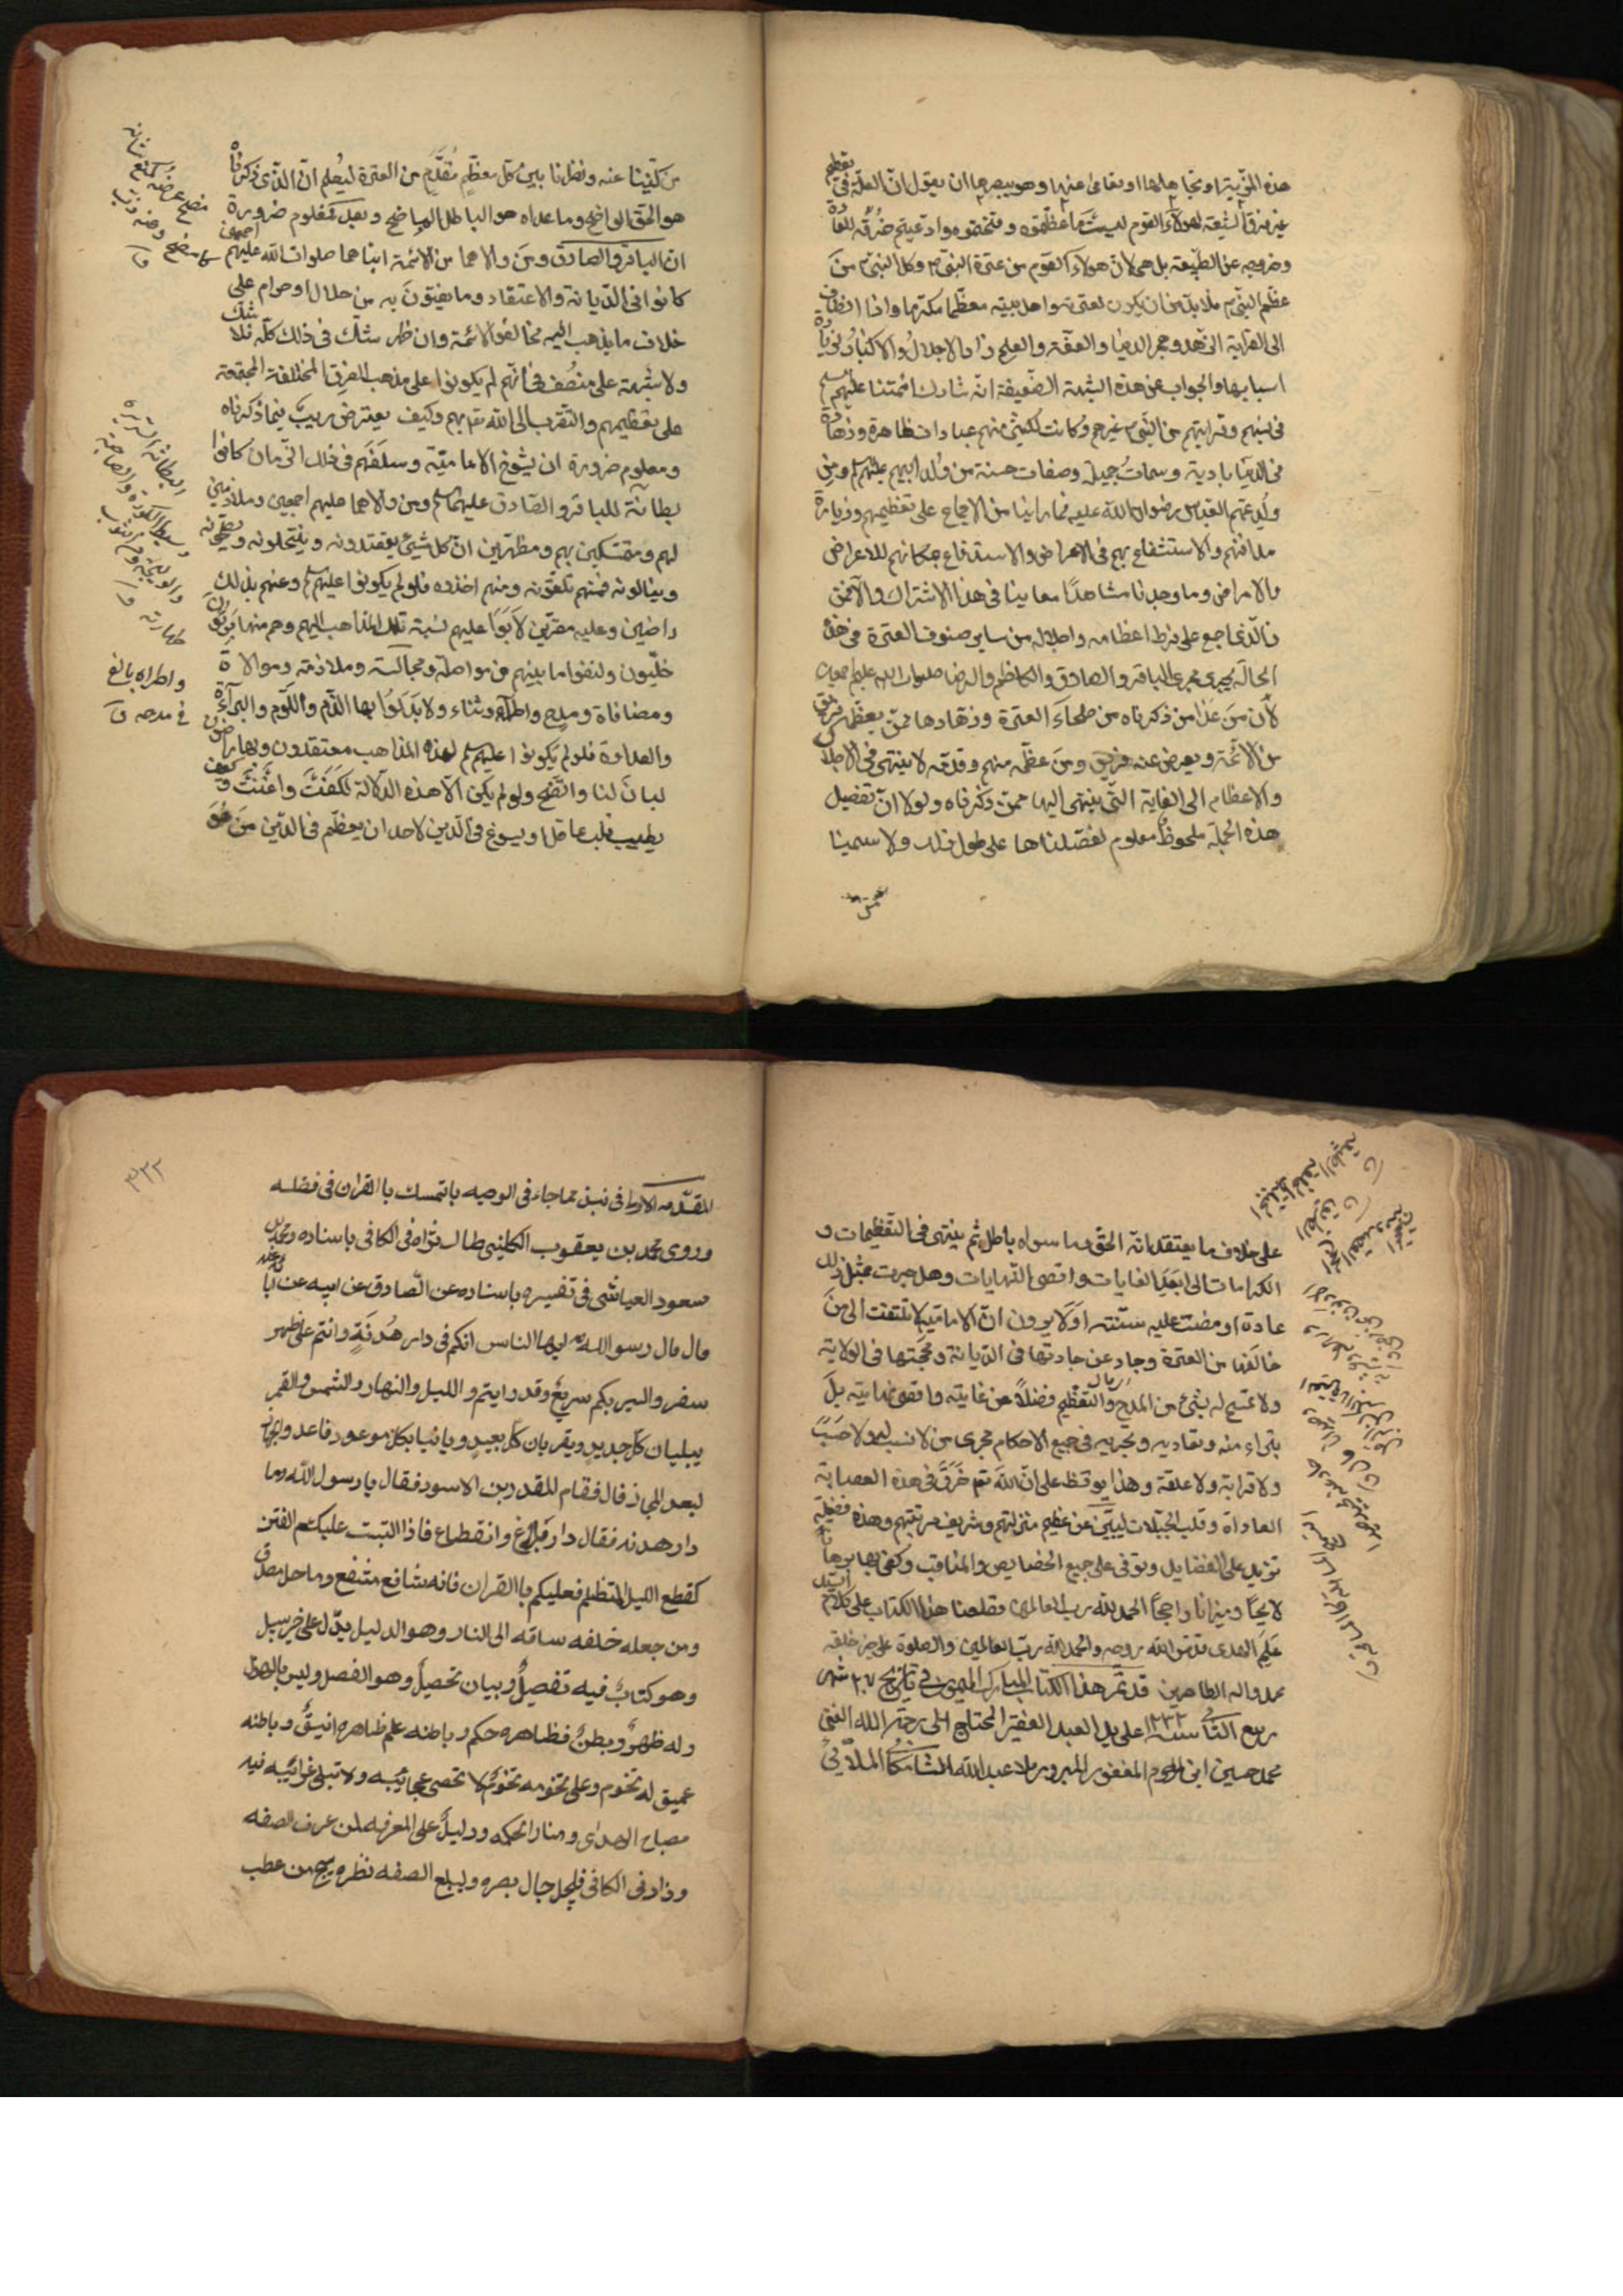 هذه المزية او تجاهلها او تعامى عنها وهو يبصرها ان يقول ان العلة في تعظيم
غير فرق الشيعة لهؤلاء القوم ليست ما عظمتموه وفخمتموه وادعيتم خرقه للعادة
وخروجه عن الطبيعة بل هي لان هولاء القوم من عترة النبي ص وكل النبي ص من
عظم النبي ص فلا بد من ان يكون لعترته واهل بيته معظما مكرما واذا انضاف
الى القرابة الزهد وهجر الدنيا والعفة والعلم زاد الاجلال والاكبار لزيادة
اسبابها والجواب عن هذه الشبهة الضعيفة انه شارك ائمتنا عليهم السلم
في نسبهم وقرابتهم من النبي ص غيرهم وكانت لكثير منهم عبادات ظاهرة وزهادة
في الدنيا بادية وسمات جميلة وصفات حسنة من ولد ابيهم عليهم السلم ومن
ولد عمهم العباس رضوان الله عليه فما راينا من الاجماع على تعظيمهم وزيارة
مدافنهم والاستشفاع بهم في الاغراض والاستدفاع بمكانهم للاعراض
والامراض وما وجدنا مشاهدا معاينا في هذا الاشتراك والا فمن
ذا الذي اجمع على فرط اعظامه واجلاله من ساير صنوف العترة في هذه
الحالة يجري مجرى الباقر والصادق والكاظم والرضا صلوات الله عليهم اجمعين
لان من عدا من ذكرناه من صلحاء العترة وزهادها ممن يعظمه فريق
من الامة ويعرض عنه فريق ومن عظمه منهم وقدمه لا ينتهي في الاجلال
والاعظام الى الغاية التي ينتهي اليها ممن ذكرناه ولولا ان تفصيل
هذه الجملة ملحوظ معلوم لفصلناها على طول ذلك ولاسمينا
من كنينا عنه ونظرنا بين كل معظم مقدم من العترة ليعلم ان الذي ذكرناه
هو الحق الواضح وما عداه هو الباطل الماضح وبعد فمعلوم ضرورة
ان الباقر والصادق ومن والاهما من الائمة ابناهما صلوات الله عليهم اجمعين
كانوا في الديانة والاعتقاد وما يفتون به من حلال او حرام على
خلاف ما يذهب اليه مخالفوا الائمة وان ظهر شك في ذلك كله فلا شك
ولا شبهة على منصف في انهم لم يكونوا على مذهب الفرق المختلفة المجتمعة
على تعظيمهم والتقرب الى الله تع بهم وكيف يعترض ريب فيما ذكرناه
ومعلوم ضرورة ان شيوخ الامامية وسلفهم في ذلك الزمان كانوا
بطانة للباقر والصادق عليهما السلم ومن والاهما عليهم اجمعين وملازمين
لهم ومتمسكين بهم ومظهرين ان كل شيئ يعتقدونه وينتحلونه ويصححونه
ويبطلونه فعنهم تلقونه ومنهم اخذوه فلو لم يكونوا عليهم السلم وعنهم بذلك
راضين وعليه مقرين لابوا عليهم نسبة تلك المذاهب اليهم وهم منها بريئون
خليون ولنفوا ما بينهم من مواصلة ومجالسة وملازمة وموالاة
ومصافاة ومدح واطراء وثناء ولابدلوا بها الذم واللوم والبراءة
والعداوة فلو لم يكونوا عليهم السلم لهذه المذاهب معتقدون وبها راضون
لبان لنا واتضح ولو لم يكن الا هذه الدلالة لكفت واغنت وكيف
يطيب قلب عاقل او يسوغ في الدين لاحد ان يعظم في الدين من هو
واطراه بالغ
في مدحه ق
على خلاف ما يعتقد انه الحق وما سواه باطل ثم ينتهي في التعظيمات و
الكرامات الى ابعد الغايات واقصى النهايات وهل جرت بمثل ذلك
عادة او مضت عليه سنة او لا يرون ان الامامية لا تلتفت الى من
خالفها من العترة وحاد عن جادتها في الديانة ومحجتها في الولاية
ولا تسمح له بشيء من المدح والتعظيم فضلا عن غايته واقصى نهايته بل
تتبراء منه وتعاديه وتجريه في جميع الاحكام مجرى من لا نسب له ولا حسب
ولا قرابة ولا علقة وهذا يوقظ على ان الله تع خرق في هذه العصابة
العادات وقلب الجبلات ليبين عن عظيم منزلتهم وشريف مرتبتهم وهذه فضيلة
تزيد على الفضايل وتوفي على جميع الخصايص والمناقب وكفى بها برهانا
لايحا وميزانا راجحا الحمد لله رب العالمين وقطعنا هذا الكتاب على كلام السيد
علم الهدى قدس الله روحه والحمد لله رب العالمين والصلوة على خير خلقه
محمد واله الطاهرين قد تم هذا الكتاب المبارك الميمون في تاريخ ٢٧ شهر
ربيع الثاني سنة ١٢٣٢ على يد العبد الفقير المحتاج الى رحمة الله الغني
محمد حسين ابن المرحوم المغفور المبرور ملا عبدالله
٣٣٢
المقدمه الاولى في نبذ مما جاء في الوصيه بالتمسك بالقران في فضله
وروى محمد بن يعقوب الكليني طاب ثراه في الكافي باسناده ومحمد بن
مسعود العياشي في تفسيره باسناده عن الصادق عن ابيه عن ابائه
قال قال رسول الله ص ايها الناس انكم في دار هدنة وانتم على ظهر
سفر والسير بكم سريع وقد رايتم والليل والنهار والشمس والقمر
يبليان كل جديد ويقربان كل بعيد وياتيا بكل موعود فاعدوا الجهاز
لبعد المجاز قال فقام المقدد بن الاسود فقال يا رسول الله وما
دار هدنه فقال دار بلاغ وانقطاع فاذا التبست عليكم الفتن
كقطع الليل المظلم فعليكم باالقران فانه شافع مشفع وما حل مصدق
ومن جعله خلفه ساقه الى النار وهو الدليل يدل على خير سبيل
وهو كتاب فيه تفصيل وبيان تحصيل وهو الفصل وليس بالهزل
وله ظهر وبطن فظاهره حكم وباطنه علم ظاهره انيق وباطنه
عميق له تخوم وعلى تخومه تخوم لا تحصى عجائبه ولا تبلى غرائبه فيه
مصباح الهدى ومنار الحكمه ودليل على المعرفه لمن عرف الصفه
وزاد في الكافي فليجل جال بصره وليبلغ الصفه نظره ينج من عطب